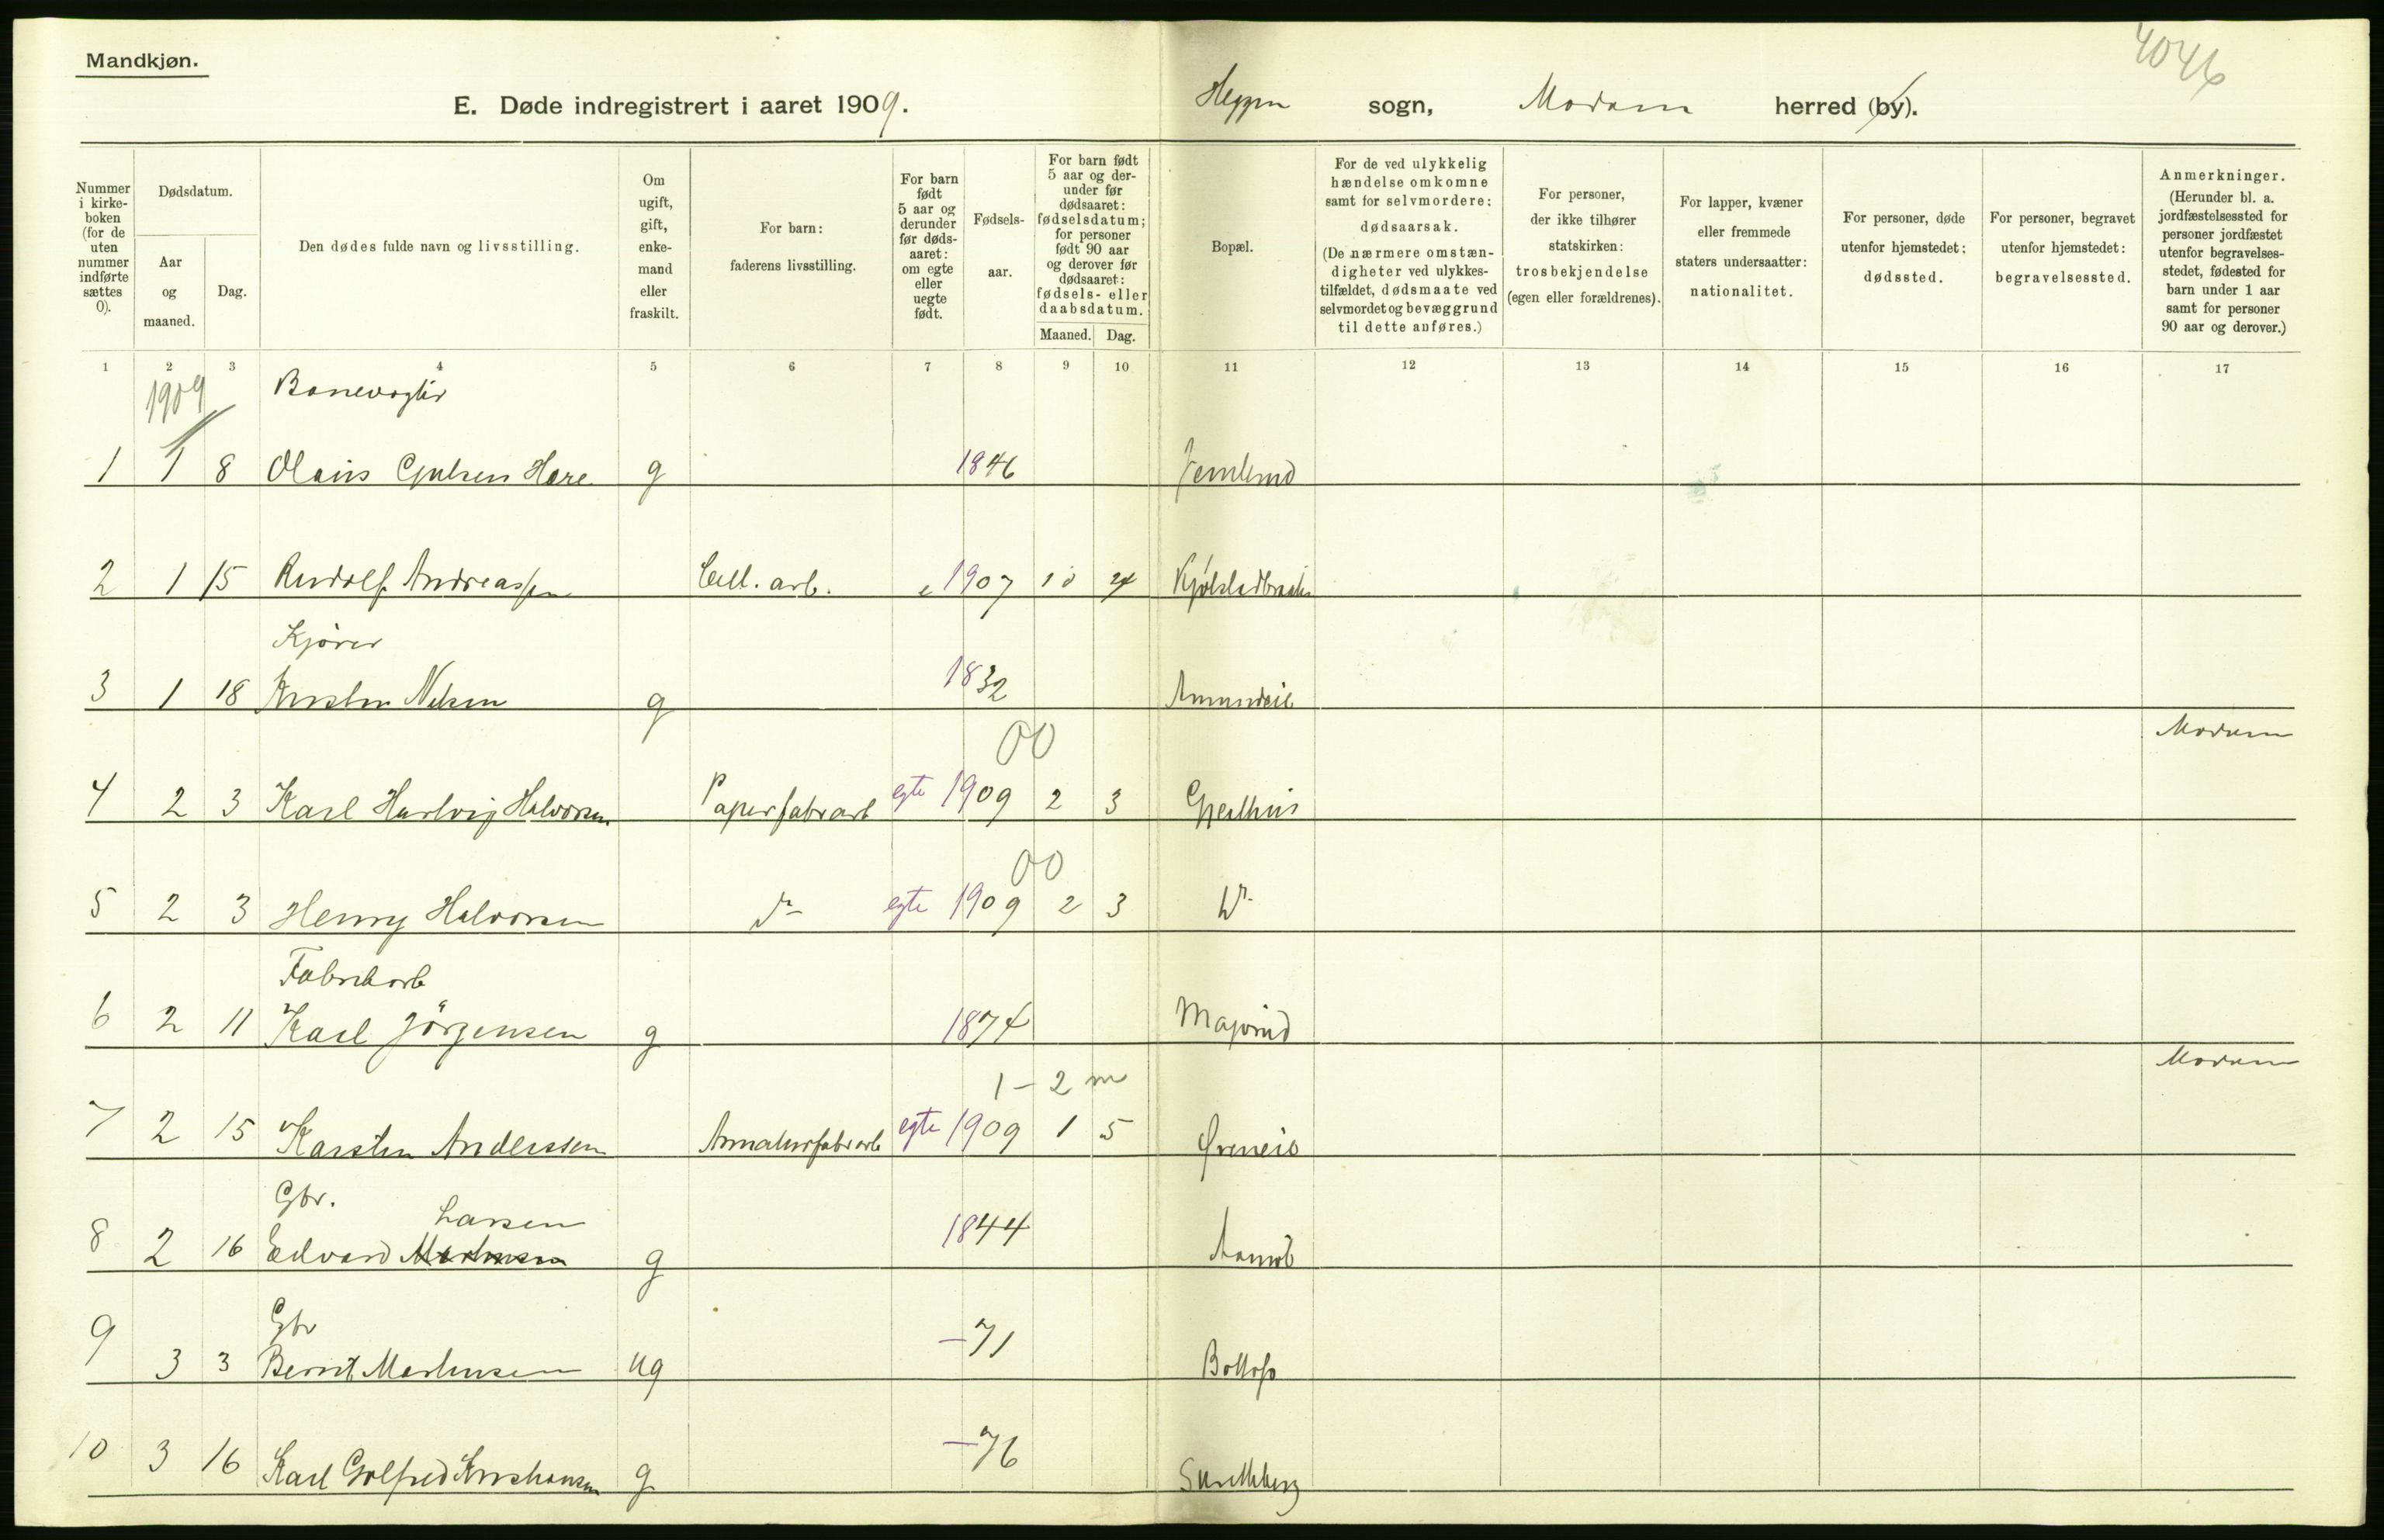 Mandkjøn.
4046
E. Døde indregistrert i aaret 1909. Heggen sogn, Modum herred (by).
Nummer i kirkeboken (for de uten nummer indførte sættes 0).
Dødsdatum.
Aar og maaned.
Dag.
Den dødes fulde navn og livsstilling.
Om ugift, gift, enkemand eller fraskilt.
For barn: faderens livsstilling.
For barn født 5 aar og derunder før dødsaaret: om egte eller uegte født.
Fødselsaar.
For barn født 5 aar og derunder før dødsaaret: fødselsdatum; for personer født 90 aar og derover før dødsaaret: fødsels- eller daabsdatum.
Maaned. Dag.
Bopæl.
For de ved ulykkelig hændelse omkomne samt for selvmordere: dødsaarsak. (De nærmere omstændigheter ved ulykkestilfældet, dødsmaate ved selvmordet og bevæggrund til dette anføres.)
For personer, der ikke tilhører statskirken: trosbekjendelse (egen eller forældrenes).
For lapper, kvæner eller fremmede staters undersaatter: nationalitet.
For personer, døde utenfor hjemstedet: dødssted.
For personer, begravet utenfor hjemstedet: begravelsessted.
Anmerkninger. (Herunder bl. a. jordfæstelsessted for personer jordfæstet utenfor begravelsesstedet, fødested for barn under 1 aar samt for personer 90 aar og derover.)
1 2 3 4 5 6 7 8 9 10 11 12 13 14 15 16 17
1909 Banevogter
1 1 8 Olaus Gulsen Hære g 1846
2 1 15 Rudolf Andreassen Cell. arb. e 1907 10 24
Kjører
3 1 18 Kristen Nilsen g 1832
00 Modum
4 2 3 Karl Hartvig Halvorsen Papirfabrarb egte 1909 2 3 Gjealhus
00
5 2 3 Henry Halvorsen do egte 1909 2 3 do
Fabrikarb
6 2 11 Karl Jörgensen g 1874
1-2 m Modum
7 2 15 Karsten Anderssen Armaturfabrarb egte 1909 1 5 Øreneie
Gbr. Larsen
8 2 16 Edvard g 1844
Gbr
9 3 3 Bernt Martinsen ug -71
10 3 16 Karl Gotfred Kristiansen g -76